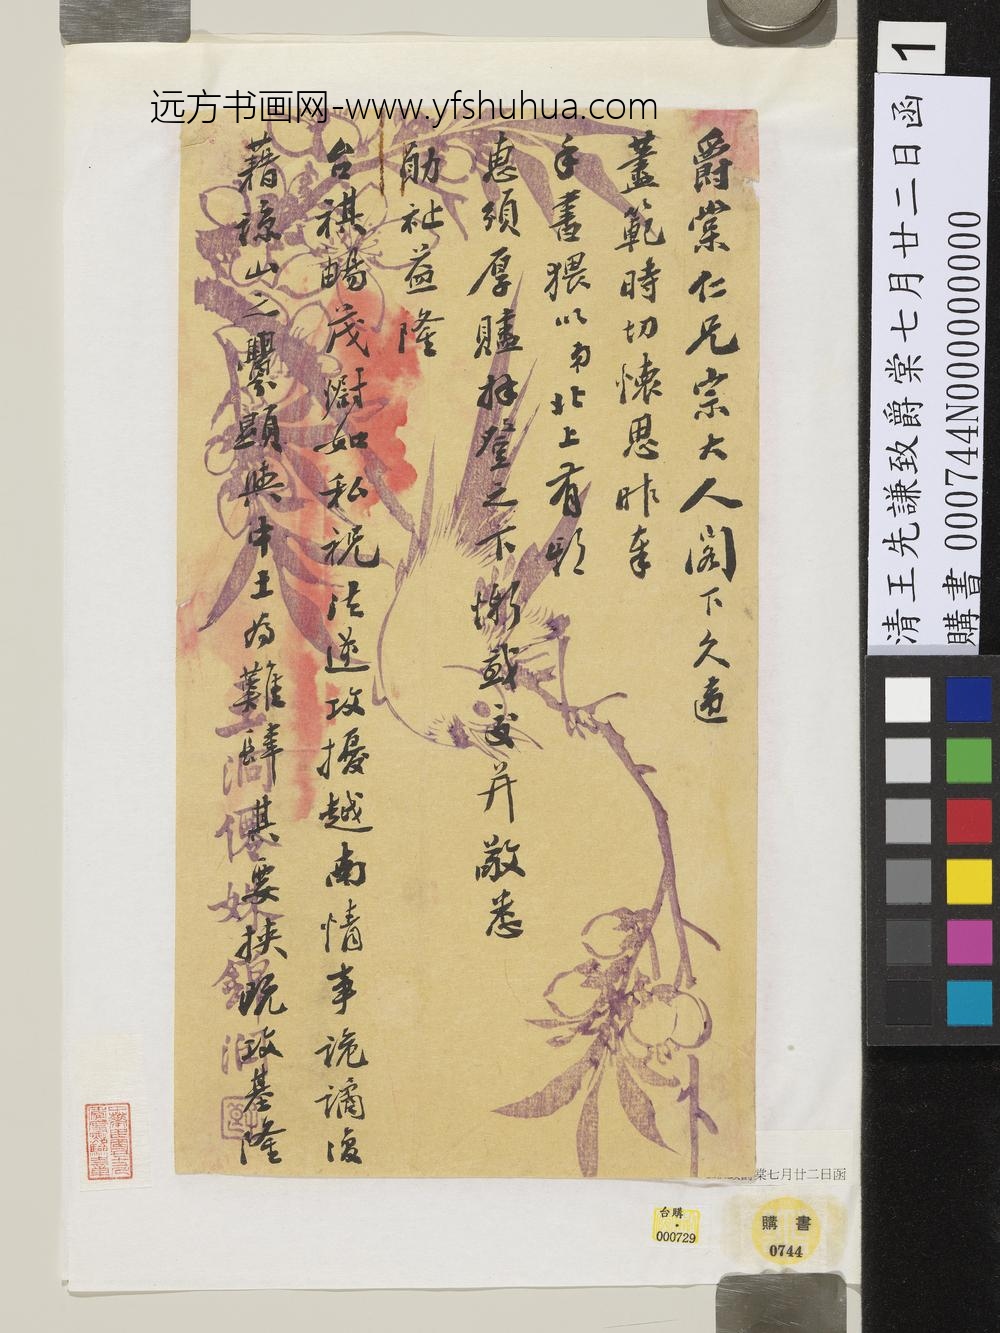 远方书画网-www.yfshuhua.com
爵棠仁兄宗大人阁下久違
蓋範時切懷思昨奉
手書猥以弟北上有期
惠頒厚贐拜登之下慚感交并敬悉
勛祉益隆
台祺暢茂慰如私祝法逆攻擾越南情事詭譎復
藉諒山之釁顯與中土為難肆其要挾既攻基隆
1
清王先謙致爵棠七月廿二日函
購書 000744N000000000
爵棠七月廿二日函
台購
000729
購書
0744